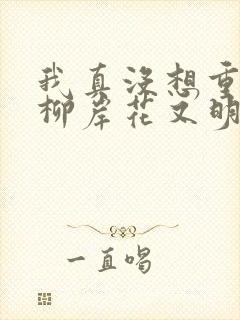 我真没想重
柳岸花又明
一直唱